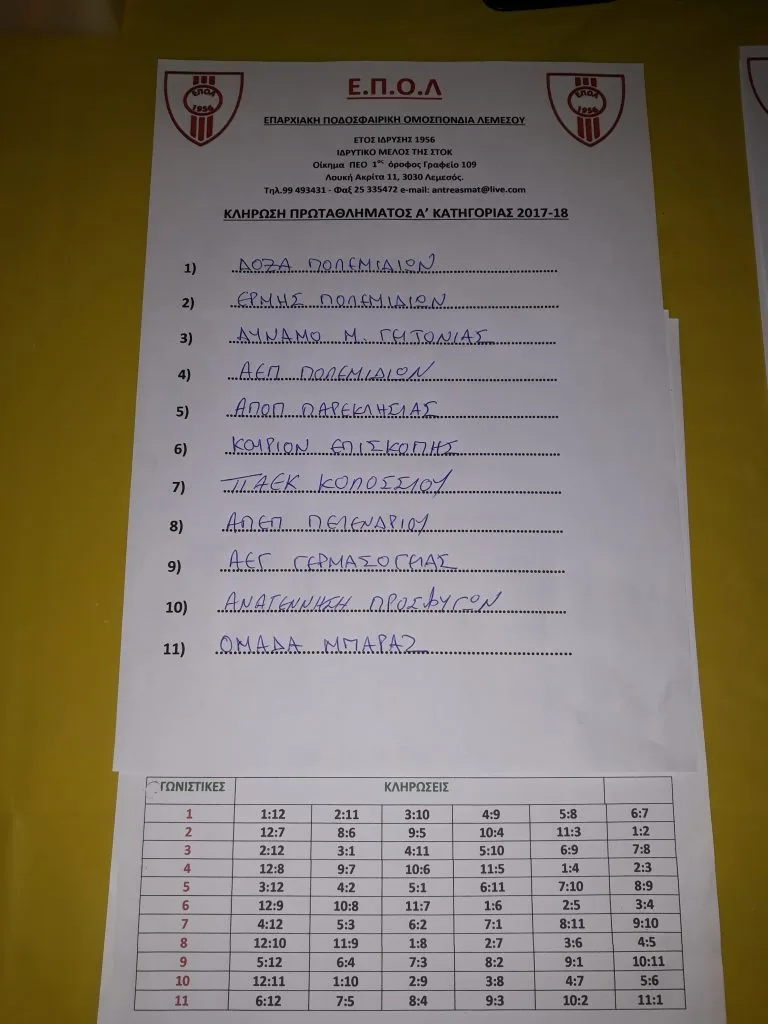 Ε.Π.Ο.Λ
ΕΠΟΛ
1956
ΕΠΟΛ
1956
ΕΠΑΡΧΙΑΚΗ ΠΟΔΟΣΦΑΙΡΙΚΗ ΟΜΟΣΠΟΝΔΙΑ ΛΕΜΕΣΟΥ
ΕΤΟΣ ΙΔΡΥΣΗΣ 1956
ΙΔΡΥΤΙΚΟ ΜΕΛΟΣ ΤΗΣ ΣΤΟΚ
Οίκημα ΠΕΟ 1ος όροφος Γραφείο 109
Λουκή Ακρίτα 11, 3030 Λεμεσός.
Τηλ.99 493431 - Φαξ 25 335472 e-mail: antreasmat@live.com
ΚΛΗΡΩΣΗ ΠΡΩΤΑΘΛΗΜΑΤΟΣ Α΄ ΚΑΤΗΓΟΡΙΑΣ 2017-18
1) ΔΟΞΑ ΠΟΛΕΜΙΔΙΩΝ
2) ΕΡΜΗΣ ΠΟΛΕΜΙΔΙΩΝ
3) ΔΥΝΑΜΟ Μ. ΓΕΙΤΟΝΙΑΣ
4) ΑΕΠ ΠΟΛΕΜΙΔΙΩΝ
5) ΑΠΟΠ ΠΑΡΕΚΛΗΣΙΑΣ
6) ΚΟΥΡΙΟΝ ΕΠΙΣΚΟΠΗΣ
7) ΠΑΕΚ ΚΟΛΟΣΣΙΟΥ
8) ΑΠΕΠ ΠΕΛΕΝΔΡΙΟΥ
9) ΑΕΓ ΓΕΡΜΑΣΟΓΕΙΑΣ
10) ΑΝΑΓΕΝΝΗΣΗ ΠΡΟΣΦΥΓΩΝ
11) ΟΜΑΔΑ ΜΠΑΡΑΖ
ΓΩΝΙΣΤΙΚΕΣ ΚΛΗΡΩΣΕΙΣ
1 1:12 2:11 3:10 4:9 5:8 6:7
2 12:7 8:6 9:5 10:4 11:3 1:2
3 2:12 3:1 4:11 5:10 6:9 7:8
4 12:8 9:7 10:6 11:5 1:4 2:3
5 3:12 4:2 5:1 6:11 7:10 8:9
6 12:9 10:8 11:7 1:6 2:5 3:4
7 4:12 5:3 6:2 7:1 8:11 9:10
8 12:10 11:9 1:8 2:7 3:6 4:5
9 5:12 6:4 7:3 8:2 9:1 10:11
10 12:11 1:10 2:9 3:8 4:7 5:6
11 6:12 7:5 8:4 9:3 10:2 11:1